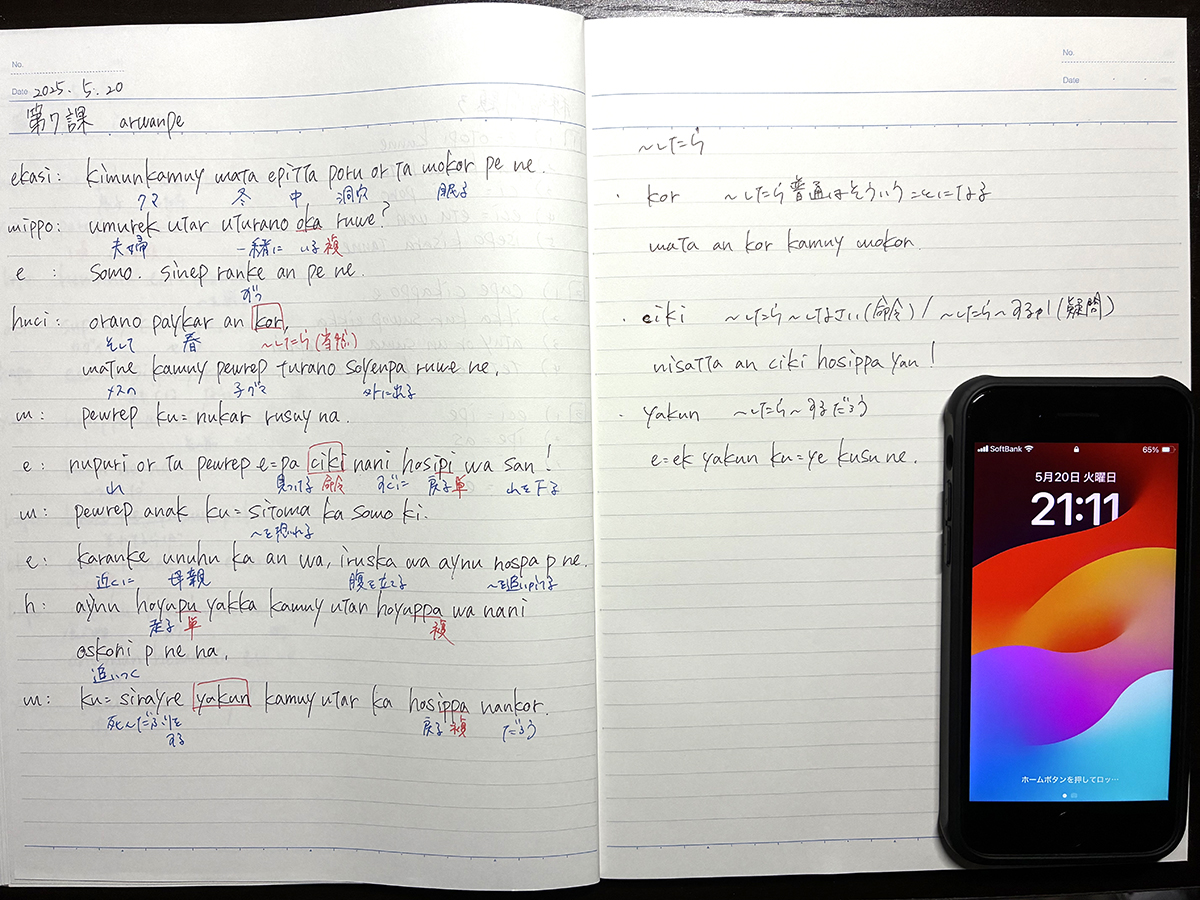 No.
Date 2025. 5. 20
第7課 arwanpe
ekasi: kimunkamuy mata epitta poru or ta mokor pe ne.
クマ 冬 中 洞穴 眠る
mippo: umurek utar uturano oka ruwe?
夫婦 一緒に いる 複
e : somo. sinep ranke an pe ne.
ずつ
huci: orano paykar an kor,
そして 春 〜したら(当然)
matne kamuy pewrep turano soyenpa ruwe ne.
メスの 子グマ 外に出る
m: pewrep ku= nukar rusuy na.
e: nupuri or ta pewrep e=pa ciki nani hosipi wa san!
山 見つける 命令 すぐに 戻る 単 山を下る
m: pewrep anak ku= sitoma ka somo ki.
〜を恐れる
e: karanke unuhu ka an wa, iruska wa aynu nospa p ne.
近くに 母親 腹を立てる 〜を追いかける
h: aynu hoyupu yakka kamuy utar hoyuppa wa nani
走る 単 複
oskoni p ne na.
追いつく
m: ku= sirayre yakun kamuy utar ka hosippa nankor.
死んだふりを する 戻る 複 だろう
No.
Date
〜したら
・ kor 〜したら普通はそういうことになる
mata an kor kamuy mokor.
・ ciki 〜したら〜しなさい(命令) / 〜したら〜するか!(疑問)
nisatta an ciki hosippa yan!
・ yakun 〜したら〜するだろう
e=ek yakun ku=ye kusu ne.
SoftBank 65%
5月20日 火曜日
21:11
ホームボタンを押してロッ…